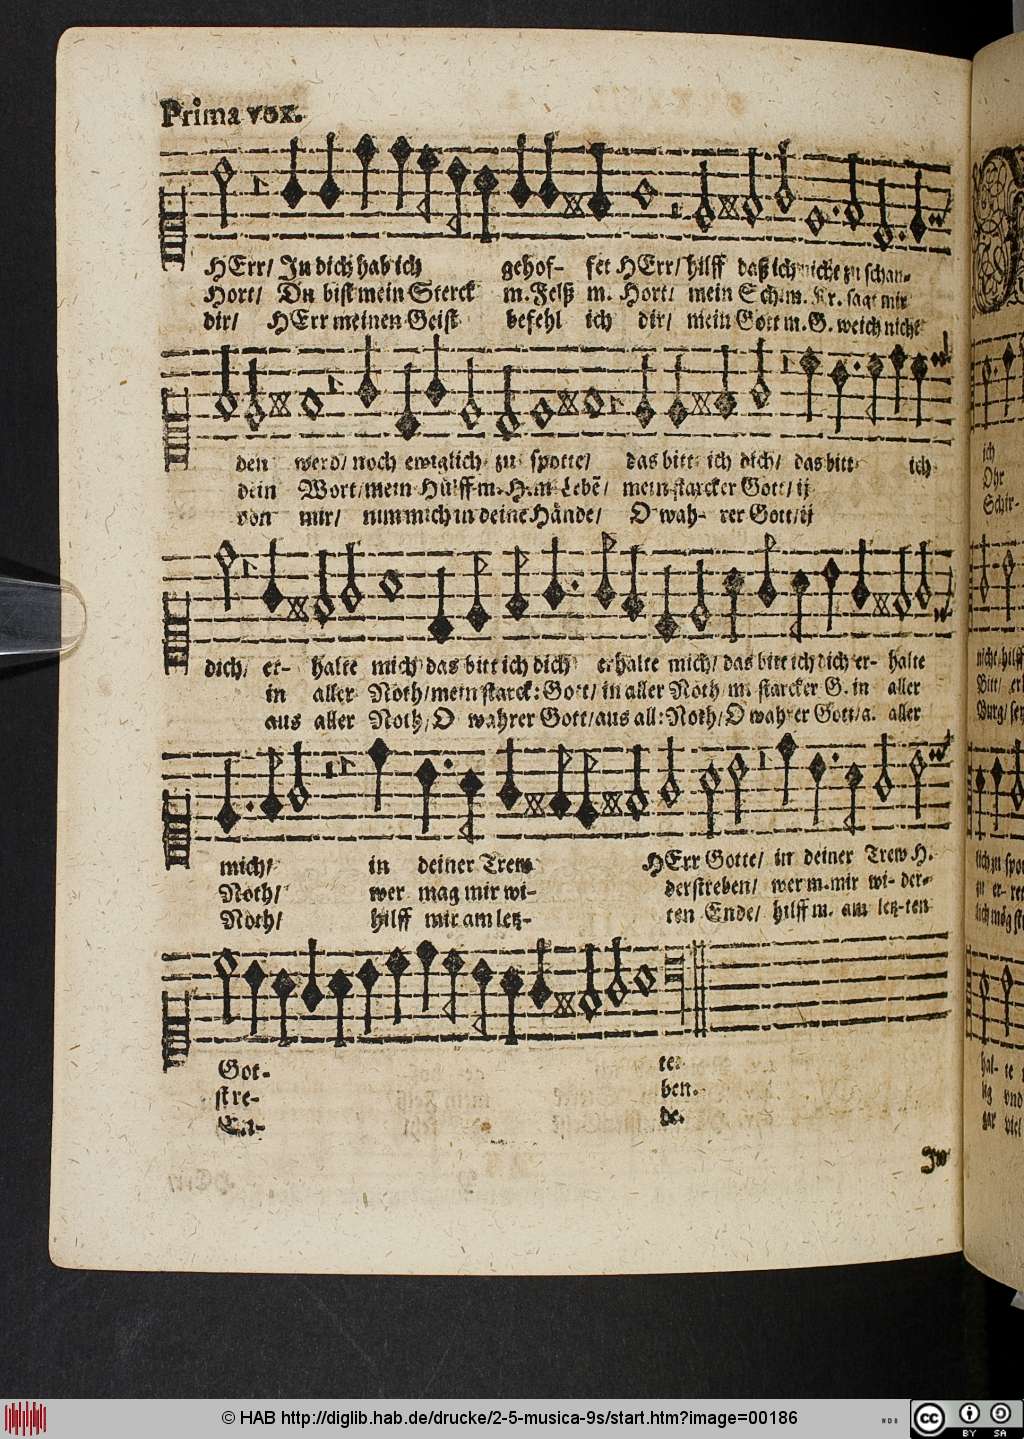 Prima vox.
HErr/ In dich hab ich gehof- fet HErr/ hilff daß ich nicht zu schan-
Hort/ Du bist mein Sterck m. Felß m. Hort/ mein Sch. m. Kr. sagt mir
dir/ HErr meinen Geist befehl ich dir/ mein Gott m. G. weich nicht
den werd/ noch ewiglich zu spotte/ das bitt ich dich/ das bitt ich
dein Wort/ mein Hülff m. H. m. Lebẽ/ mein starcker Gott/ ij
von mir/ nim mich in deine Hände/ O wah- rer Gott/ ij
dich/ er- halte mich das bitt ich dich erhalte mich/ das bitt ich dich er- halte
in aller Noth/ mein starck: Gott/ in aller Noth m. starcker G. in aller
aus aller Noth/ O wahrer Gott/ aus all: Noth/ O wahrer Gott/ a. aller
mich/ in deiner Trew HErr Gotte/ in deiner Trew H.
Noth/ wer mag mir wi- derstreben/ wer m. mir wi- der-
Noth/ hilff mir am letz- ten Ende/ hilff m. am letz-ten
Got- te.
stre- ben.
En- de.
In
ich
Ohr
Schir-
nicht/ hilff
Bitt/ er
Burg/ sey
hal- te
und
gar viel
© HAB http://diglib.hab.de/drucke/2-5-musica-9s/start.htm?image=00186
cc BY SA